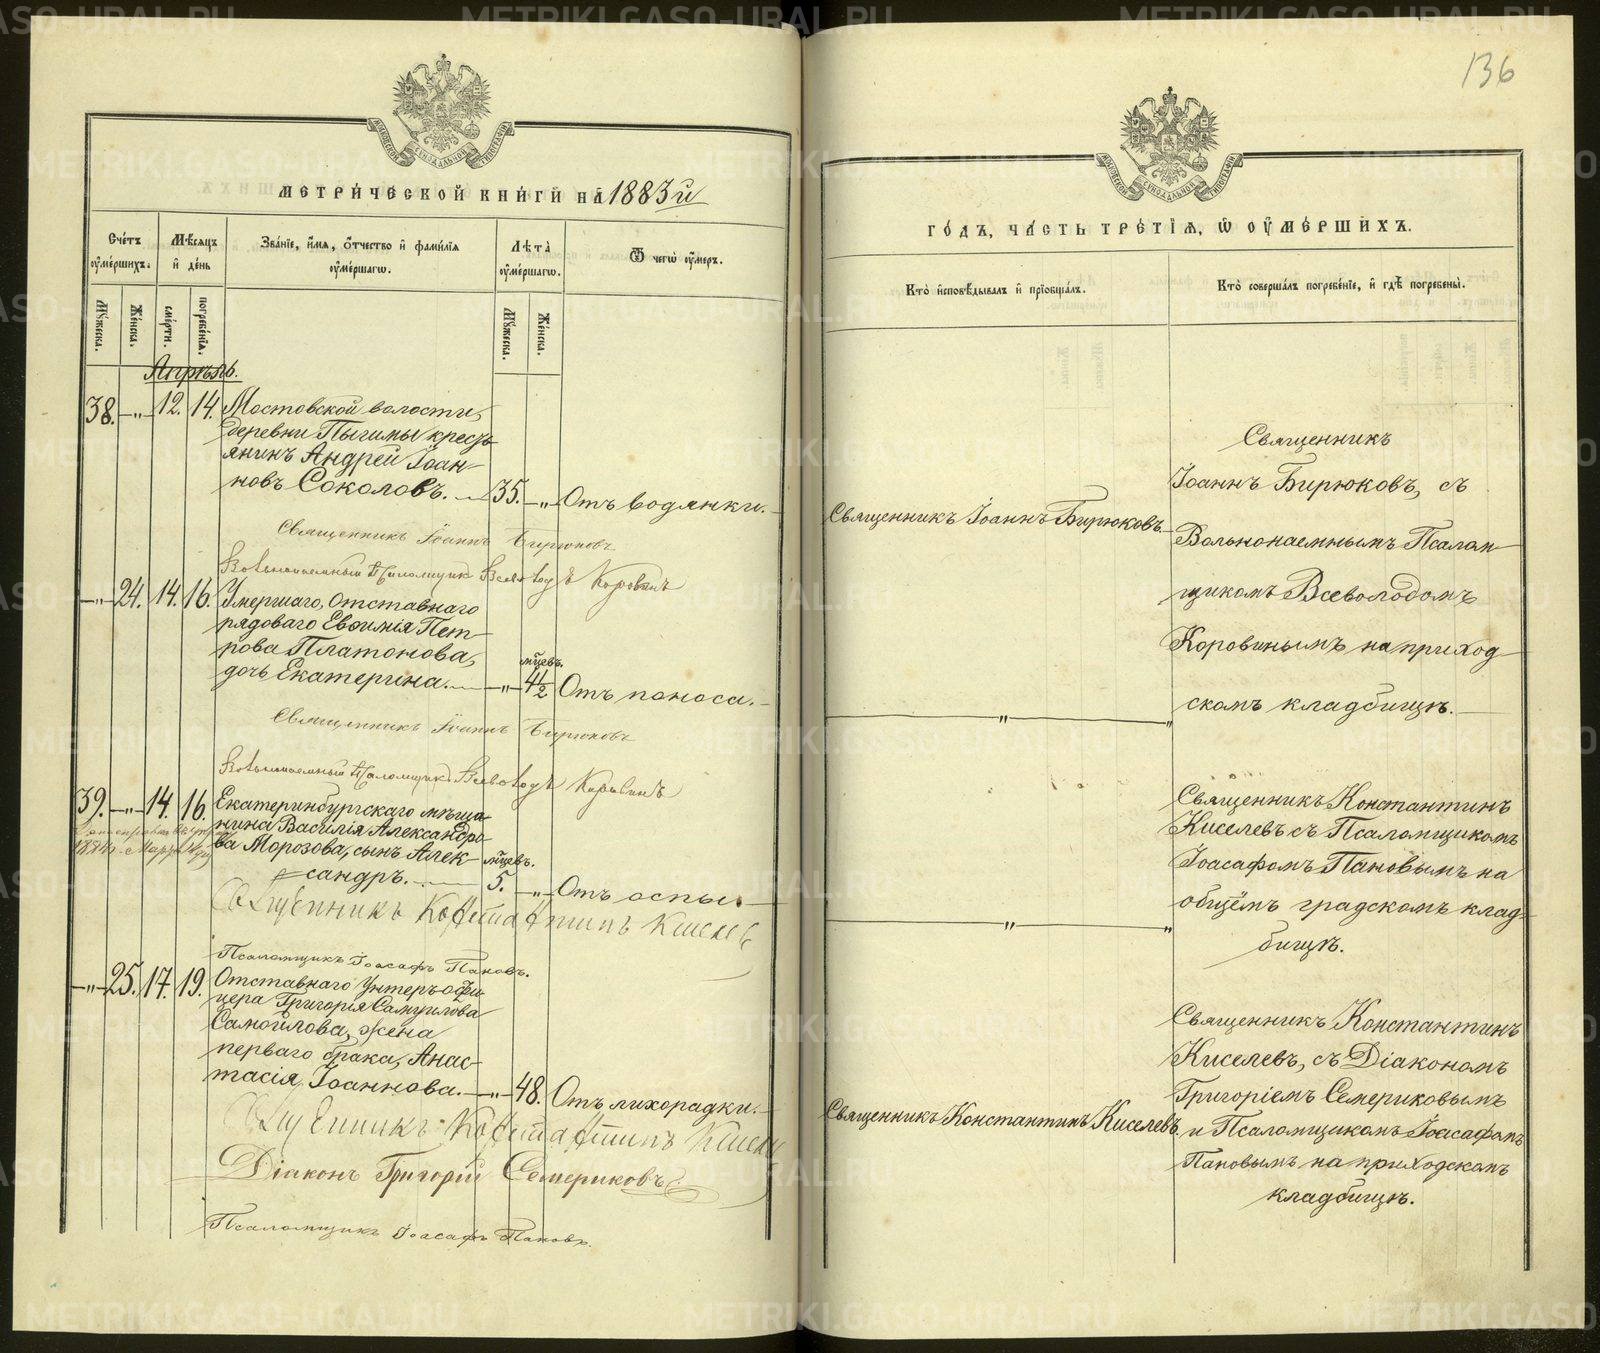 136
МЕТРИЧЕСКОЙ КНИГИ НА 1883й
Счетъ умершихъ.
Мѣсяцъ и день
Званіе, имя, отчество и фамилія умершаго.
Лѣта умершаго.
Ѿ чегѡ умеръ.
Мужеска.
Женска.
смерти.
погребенія.
Мужеска.
Женска.
Апрѣль.
38. —„— 12. 14. Мостовской волости,
деревни Пышмы кресть-
янинъ Андрей Іоан-
новъ Соколовъ. 35. —„— Отъ водянки.
Священникъ Іоаннъ Бирюковъ
Вольнонаемный Псаломщикъ Всеволодъ Коровинъ
—„— 24. 14. 16. Умершаго, Отставнаго
рядоваго Евѳимія Пет-
рова Платонова,
мѣсяцевъ.
дочь Екатерина. —„— 4½ Отъ поноса.
Священникъ Іоаннъ Бирюковъ
Вольнонаемный Псаломщикъ Всеволодъ Коровинъ
39. —„— 14. 16. Екатеринбургскаго мѣща-
нина Василія Александро-
ва Морозова, сынъ Алек-
мѣсяцевъ.
сандръ. 5. —„— Отъ оспы.
1884 г. Марта
Священникъ Константинъ Киселевъ
Псаломщикъ Іоасафъ Пановъ.
—„— 25. 17. 19. Отставнаго Унтеръ-офи-
цера Григорія Самуилова
Самойлова, жена
перваго брака, Анас-
тасія Іоаннова. —„— 48. Отъ лихорадки.
Священникъ Константинъ Киселевъ
Діаконъ Григорій Семериковъ
Псаломщикъ Іоасафъ Пановъ.
ГОДЪ, ЧАСТЬ ТРЕТІЯ, Ѡ УМЕРШИХЪ.
Кто исповѣдывалъ и пріобщалъ.
Кто совершалъ погребеніе, и гдѣ погребены.
Священникъ Іоаннъ Бирюковъ
Священникъ
Іоаннъ Бирюковъ, съ
Вольнонаемнымъ Псалом-
щикомъ Всеволодомъ
Коровинымъ на приход-
скомъ кладбищѣ.
—„—
Священникъ Константинъ
Киселевъ съ Псаломщикомъ
Іоасафомъ Пановымъ на
общемъ градскомъ клад-
бищѣ.
—„—
Священникъ Константинъ Киселевъ
Священникъ Константинъ
Киселевъ, съ Діакономъ
Григоріемъ Семериковымъ
и Псаломщикомъ Іоасафомъ
Пановымъ на приходскомъ
кладбищѣ.
METRIKI.GASO-URAL.RU